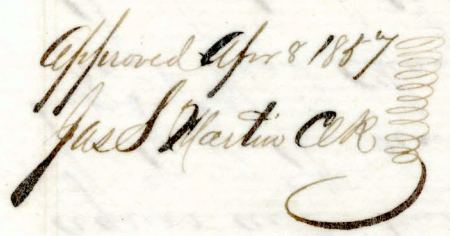 Approved Apr 8 1857
Jas S Martin Clk